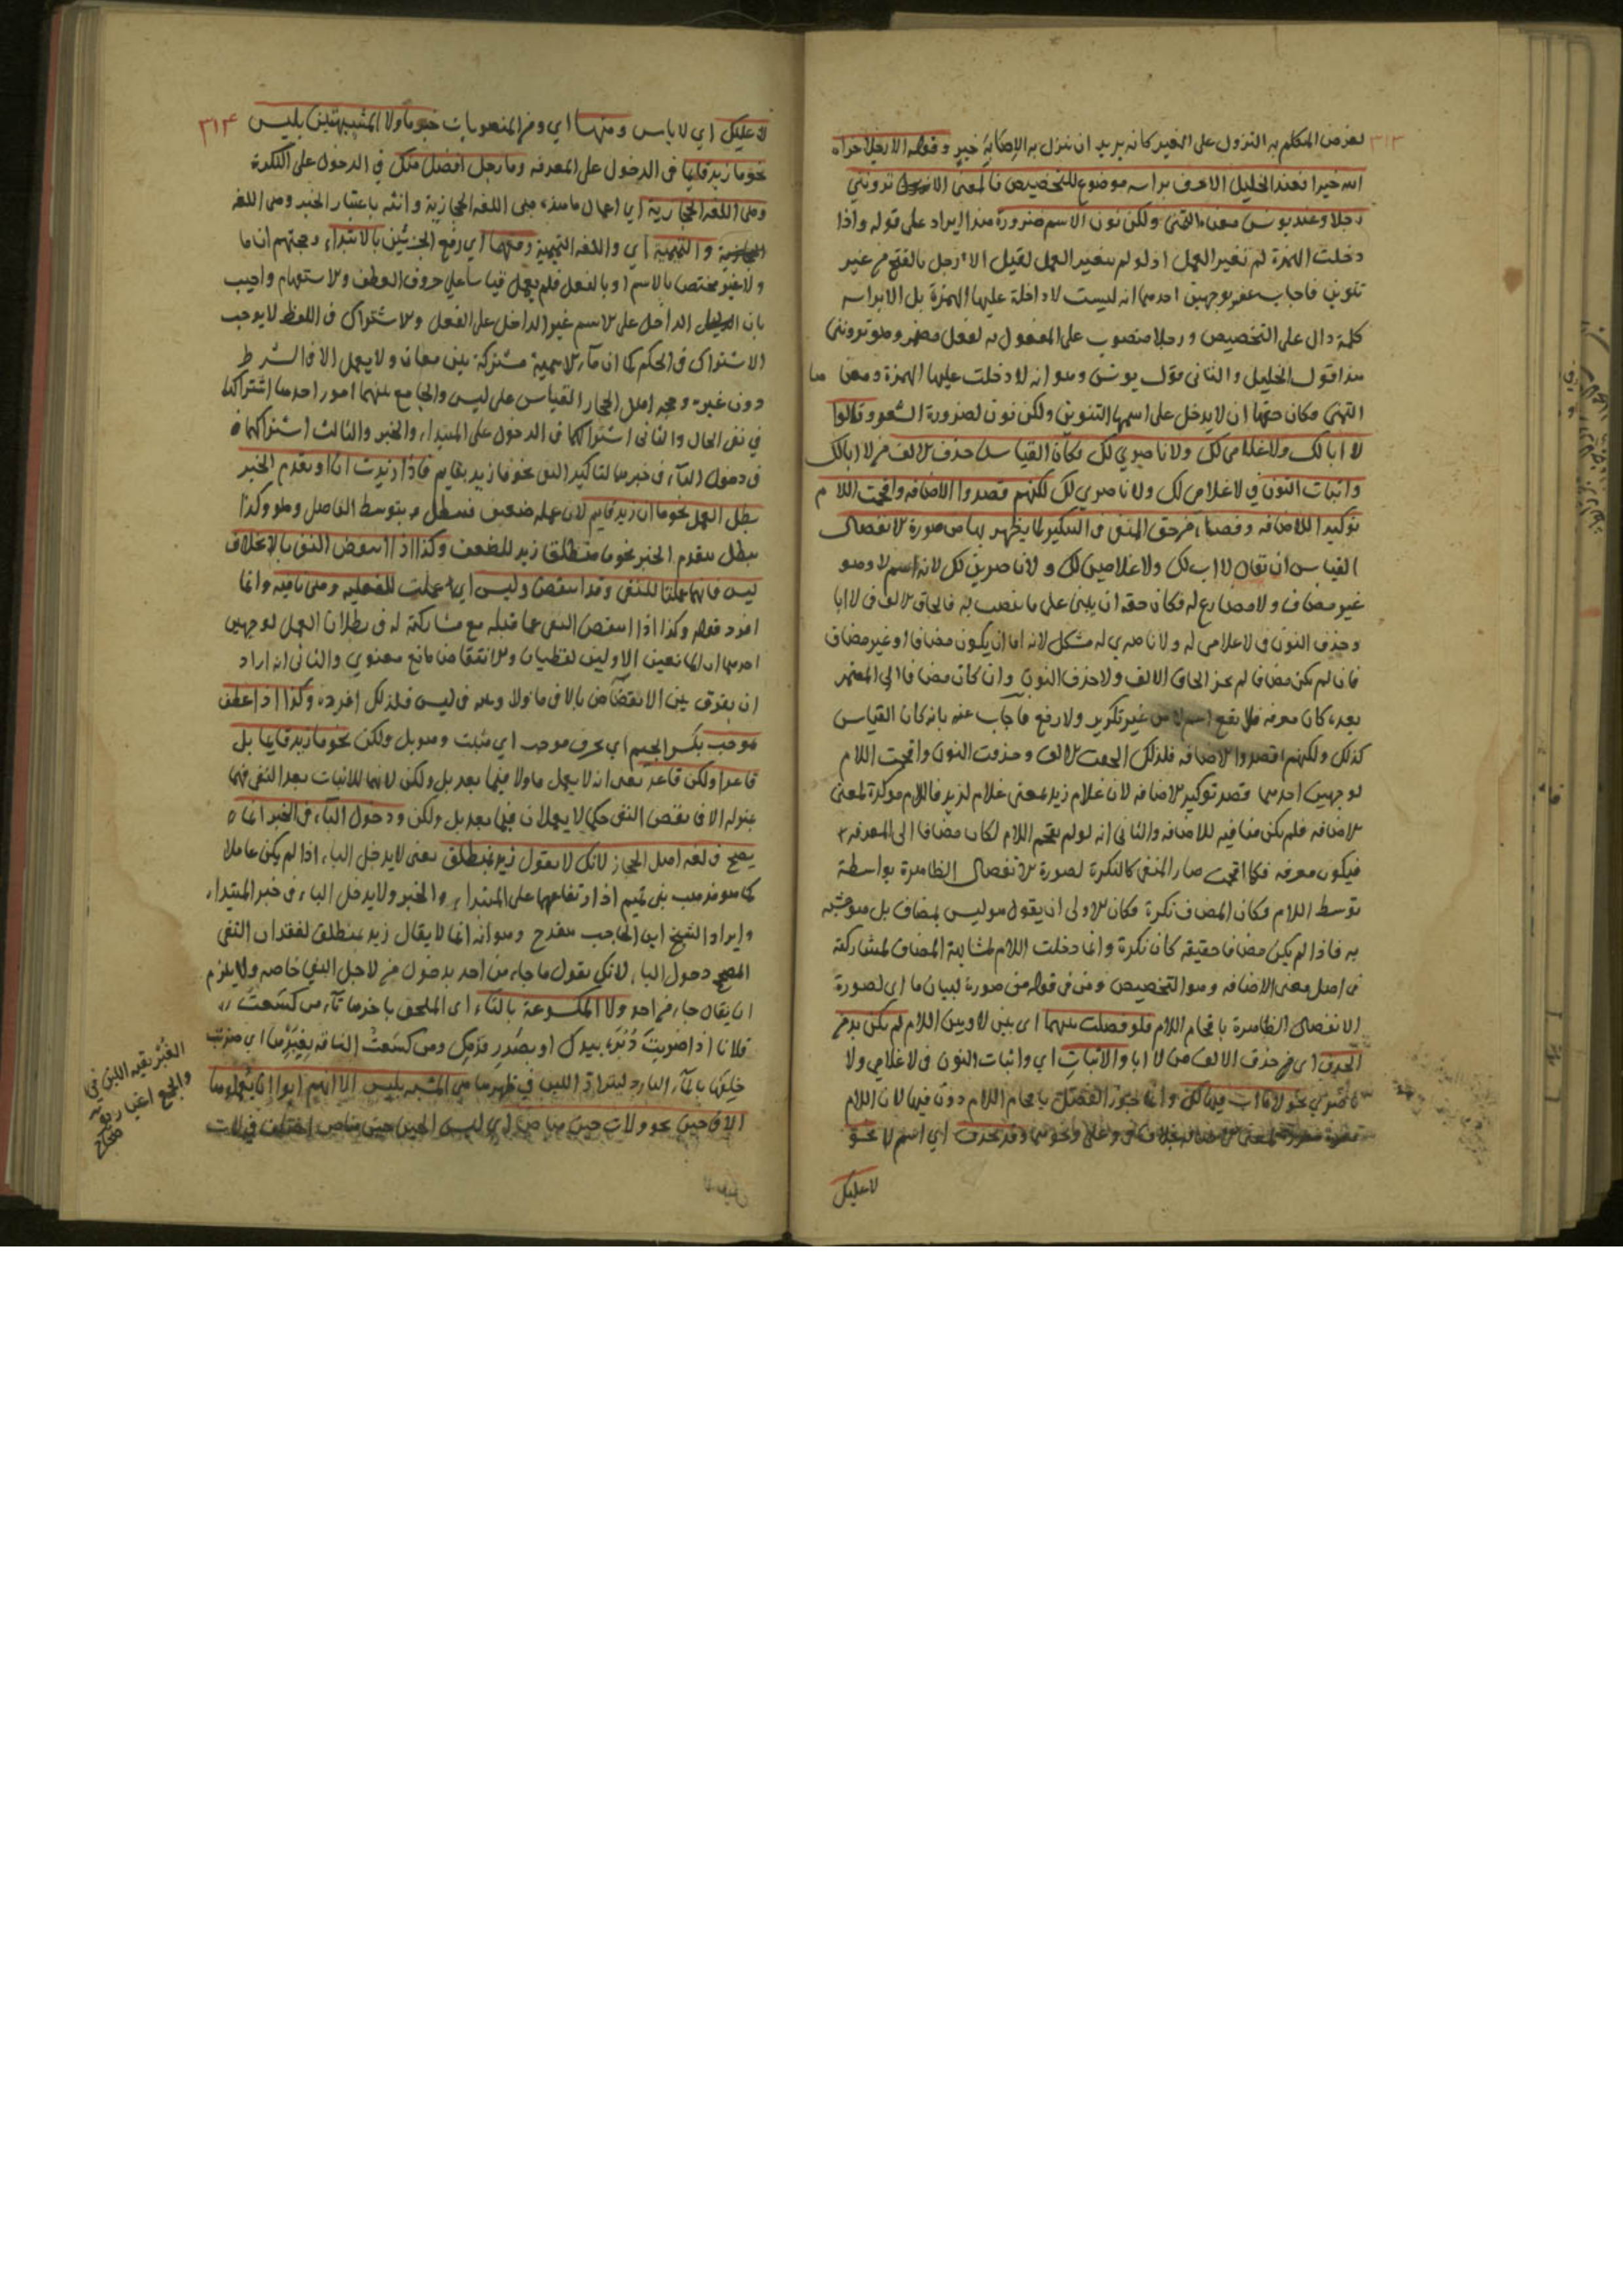 ٣١٣
لغرض المتكلم به النزول على الخير كانه يريد ان ينزل به الاصابة خير وقوله الا رجلا جزاه
الله خيرا فعند الخليل الا حرف براسه موضوع للتخصيص فالمعنى الا ترونني
رجلا وعند يونس معناه التمني ولكن نون الاسم ضرورة هذا ايراد على قوله واذا
دخلت الهمزة لم تغير العمل اذ لو لم يتغير العمل لقيل الا رجل بالفتح من غير
تنوين فاجاب عنه بوجهين احدهما انه ليست لا داخلة عليها الهمزة بل الا براسه
كلمة دال على التخصيص ورجلا منصوب على المفعول به لفعل مضمر وهو ترونني
هذا قول الخليل والثاني قول يونس وهو انه لا دخلت عليها الهمزة ومعناها
التمني وكان حقها ان لا يدخل على اسمها التنوين ولكن نون لضرورة الشعر وقالوا
لا ابا لك ولا غلامي لك ولا ناصري لك وكان القياس حذف الالف من لا ابا لك
واثبات النون في لا غلامي لك ولا ناصري لك لكنهم قصدوا الاضافة واقحمت اللام
توكيدا للاضافه وقضاء من حق المنفي في التنكير لما يظهر بها من صورة الانفصال
القياس ان يقال لا اب لك ولا غلامين لك ولا ناصرين لك لانه اسم لا وهو
غير مضاف ولا مضارع له فكان حقه ان يبنى على ما ينصب به فالحاق الالف في لا ابا
وحذف النون في لا غلامي له ولا ناصري له مشكل لانه اما ان يكون مضافا او غير مضاف
فان لم يكن مضافا لم يجز الحاق الالف ولا حذف النون وان كان مضافا الى المضمر
بعده كان معرفه فلا يقع اسم لا من غير تكرير ولا رفع فاجاب عنه بانه كان القياس
كذلك ولكنهم قصدوا الاضافه فلذلك الحقت الالف وحذفت النون واقحمت اللام
لوجهين احدهما قصد توكيد الاضافه لان غلام زيد بمعنى غلام لزيد فاللام موكدة لمعنى
الاضافه فلم يكن منافيه للاضافه والثاني انه لو لم يقحم اللام لكان مضافا الى المعرفه
فيكون معرفه فكما اقحمت صار المنفي كالنكرة لصورة الانفصال الظاهرة بواسطة
توسط اللام فكان المضاف نكرة وكان الاولى ان يقول هو ليس بمضاف بل هو مشبه
به فاذا لم يكن مضافا حقيقه كان نكرة وانما دخلت اللام لمشابهة المضاف لمشاركته
في اصل معنى الاضافه وهو التخصيص ومن في قوله من صورة لبيان ما اي لصورة
الانفصال الظاهرة باقحام اللام فلو فصلت بينهما اى بين لا وبين اللام لم يكن بد من
الحذف اي من حذف الالف من لا ابا والاثبات اي واثبات النون في لا غلامي ولا
ناصري نحو لا اب فيها لك وانما يجوز الفصل باقحام اللام دون فيها لان اللام
لمعنى الاضافه بخلاف في وعلى ونحوهما وقد يحذف اي اسم لا نحو
لا عليك
٣١٤
لا عليك اي لا باس ومنها اي ومن المنصوبات خبر ما ولا المشبهتين بليس
نحو ما زيد قايما في الدخول على المعرفه وما رجل افضل منك في الدخول على النكرة
وهي اللغه الحجازية اي اعمال ما هذه هى اللغه الحجازية وانثه باعتبار الخبر وهى اللغه
والتميمية اي واللغه التميمية رفعهما اي رفع الجزئين بالابتداء وحجتهم ان ما
ولا غير مختص بالاسم او بالفعل فلم يعمل قياسا على حروف العطف والاستفهام واجيب
بان الداخل على الاسم غير الداخل على الفعل والاشتراك في اللفظ لا يوجب
الاشتراك في الحكم كما ان ما الاسمية مشتركة بين معان ولا يعمل الا في الشرط
دون غيره وحجه اهل الحجاز القياس على ليس والجامع بينهما امور احدها اشتراكهما
في نفي الحال والثاني اشتراكهما في الدخول على المبتداء والخبر والثالث اشتراكهما
في دخول الباء في خبرهما لتاكيد النفي نحو ما زيد بقايم فاذا زيدت ان او تقدم الخبر
بطل العمل نحو ما ان زيد قايم لان عمله ضعيف فيبطل بتوسط الفاصل وهو وكذا
يبطل بتقدم الخبر نحو ما منطلق زيد للضعف وكذا اذا انتقض النفي بالا بخلاف
ليس فانهما عملتا للنفي وقد انتقض وليس انما عملت للفعليه وهي باقيه وانما
افرد قوله وكذا اذا انتقض النفي عما قبله مع مشاركته له في بطلان العمل لوجهين
احدهما ان المانعين الاولين لفظيان والانتقاض مانع معنوي والثاني انه اراد
ان يفرق بين الانتقاض بالا في ما ولا وبينه في ليس فلذلك افرده وكذا اذا عطف
بموجب بكسر الجيم اي بحرف موجب اي مثبت وهو بل ولكن نحو ما زيد قايما بل
قاعد او لكن قاعد يعنى انه لا يعمل ما ولا فيما بعد بل ولكن لانهما للاثبات بعد النفي فهما
بمنزلة الا في نقض النفي فكما لا يعملان فيما بعد بل ولكن ودخول الباء في الخبر انما
يصح في لغه اهل الحجاز لانك لا تقول زيد بمنطلق يعنى لا يدخل الباء اذا لم يكن عاملا
كما هو مذهب بني تميم اذ ارتفاعهما على المبتداء والخبر ولا يدخل الباء في خبر المبتداء
وايراد الشيخ ابن الحاجب مقدح وهو انه انما لا يقال زيد بمنطلق لفقدان النفي
المصحح دخول الباء لانك تقول ما جاءني من احد بدخول من لاجل النفي خاصه ولا يلزم
ان يقال جاءني من احد ولا المكسوعة بالتاء اي الملحق باخرها تاء من كسعت
فلانا اذا ضربت دبره بيدك او بصدر قدمك ومن كسعت الناقه بغبرها اي ضربت
خلفها بالماء البارد ليتراد اللبن في ظهرها هي المشبهه بليس الا انهم ابوا ان يعملوها
الا في حين نحو ولات حين مناص اي ليس الحين حين مناص اختلف في لات
الغبر بقية اللبن في
والجمع اغبار
صحاح